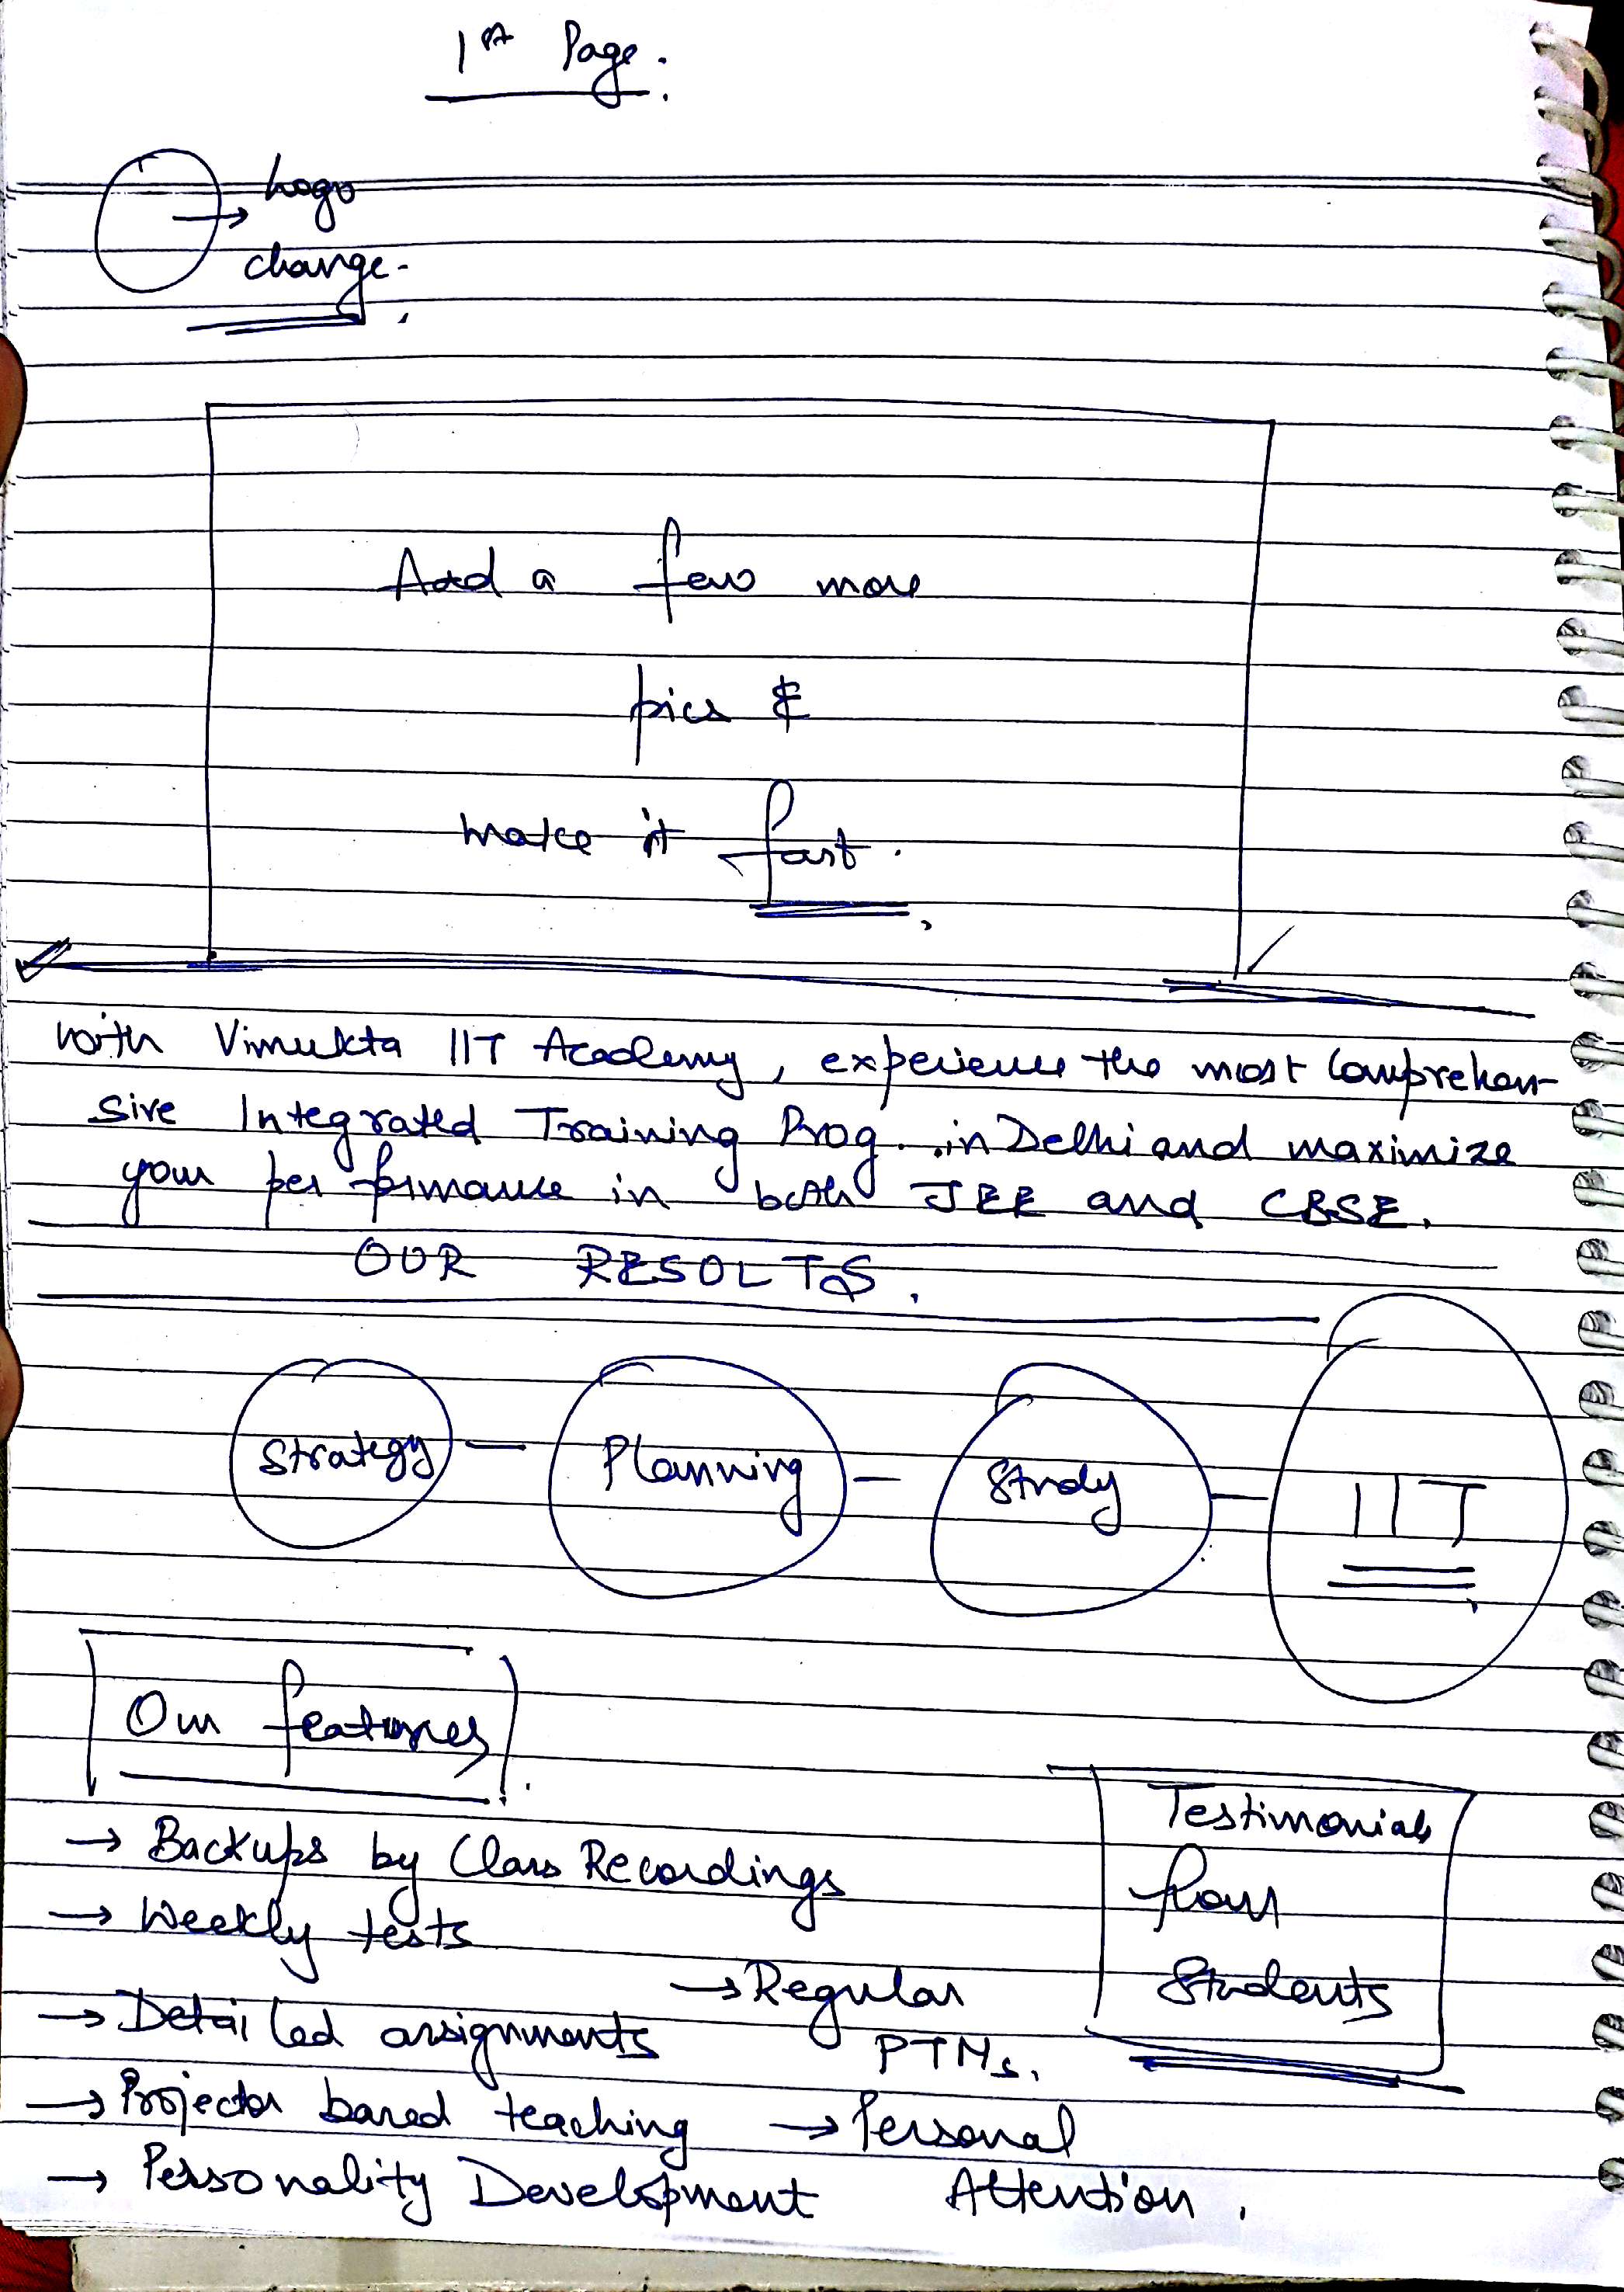 1st Page.
Logo
change.
Add a few more
pics &
make it fast.
with Vimukta IIT Academy, experience the most Comprehen-
sive Integrated Training Prog. in Delhi and maximize
your performance in both JEE and CBSE.
OUR RESULTS.
Strategy - Planning - Study - IIT
Our features
→ Backups by Class Recordings
→ Weekly tests
→ Detailed assignments
→ Projector based teaching
→ Personality Development
→ Regular
PTMs.
→ Personal
Attention.
Testimonials
from
Students